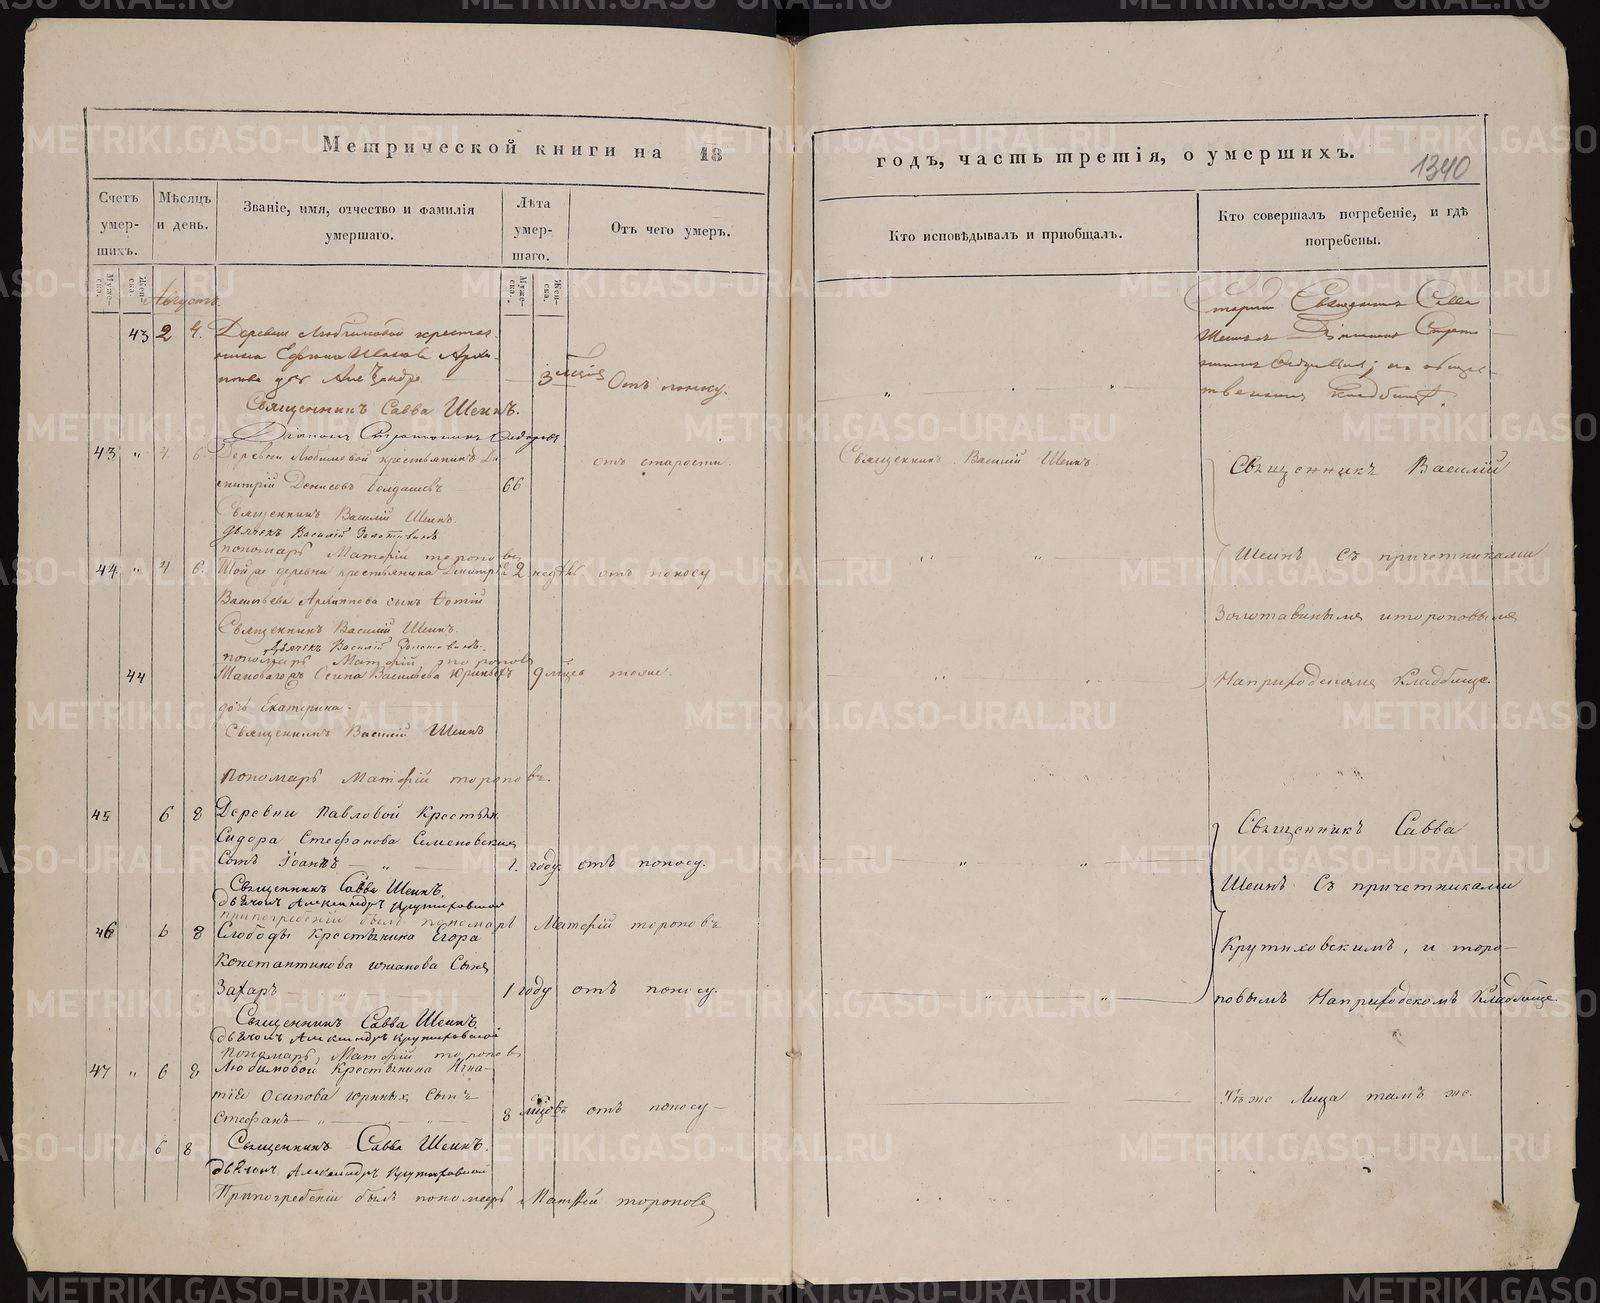 Метрической книги на 18
годъ, часть третія, о умершихъ.
1340
Счетъ умер-шихъ.
Мѣсяцъ и день.
Званіе, имя, отчество и фамилія умершаго.
Лѣта умер-шаго.
Отъ чего умеръ.
Кто исповѣдывалъ и пріобщалъ.
Кто совершалъ погребеніе, и гдѣ погребены.
Муже-ска.
Жен-ска.
Муже-ска.
Жен-ска.
Августъ
43 2 4. Деревни Любимовой крестья-
дочь Александра 3 Отъ поносу.
Священникъ Савва Шеинъ.
43 " 4 6 Деревни Любимовой крестьянинъ Ди-
митрій Денисовъ 66 отъ старости. Священникъ Василій Шеинъ
Священникъ Василій Шеинъ.
дьячекъ Василій Золотавинъ
пономарь Матфій тороповъ
44 " 4 6 деревни крестьянина Димитрія 2 недѣль отъ поносу
Васильева Архиппова сынъ Фотій
Священникъ Василій Шеинъ.
Дьячекъ Василій Золотавинъ.
пономарь Матфій тороповъ
44 Осипа Васильева Юриныхъ 9 мѣцев тоже
дочь Екатерина.
Священникъ Василій Шеинъ
Пономарь Матфій тороповъ.
Священникъ Василій
Шеинъ съ причетниками
Золотавинымъ и тороповымъ
На приходскомъ Кладбище.
45 6 8 Деревни Павловой Крестьян.
Сидора Стефанова Семеновских
Сынъ Іоаннъ 1. году. отъ поносу.
Священникъ Савва Шеинъ.
дьячокъ Александръ Крутиховской
при погребеніи былъ пономарь Матфій тороповъ
46 6 8 Слободы Крестьянина Егора
Константинова Сынъ
Захаръ 1 году отъ поносу.
Священникъ Савва Шеинъ.
дьячокъ Александръ Крутиховской
пономарь, Матфій тороповъ
Священникъ Савва
Шеинъ съ причетниками
Крутиховскимъ, и торо-
повымъ На приходскомъ Кладбище
47 " 6 8 Любимовой Крестьянина Игна-
тія Осипова Юриныхъ сынъ
Стефанъ 8 мѣцовъ отъ поносу
Тѣже Лица тамъ же.
6 8 Священникъ Савва Шеинъ.
дьячокъ Александръ Крутиховской
При погребеніи былъ пономарь Матфей тороповъ
METRIKI.GASO-URAL.RU